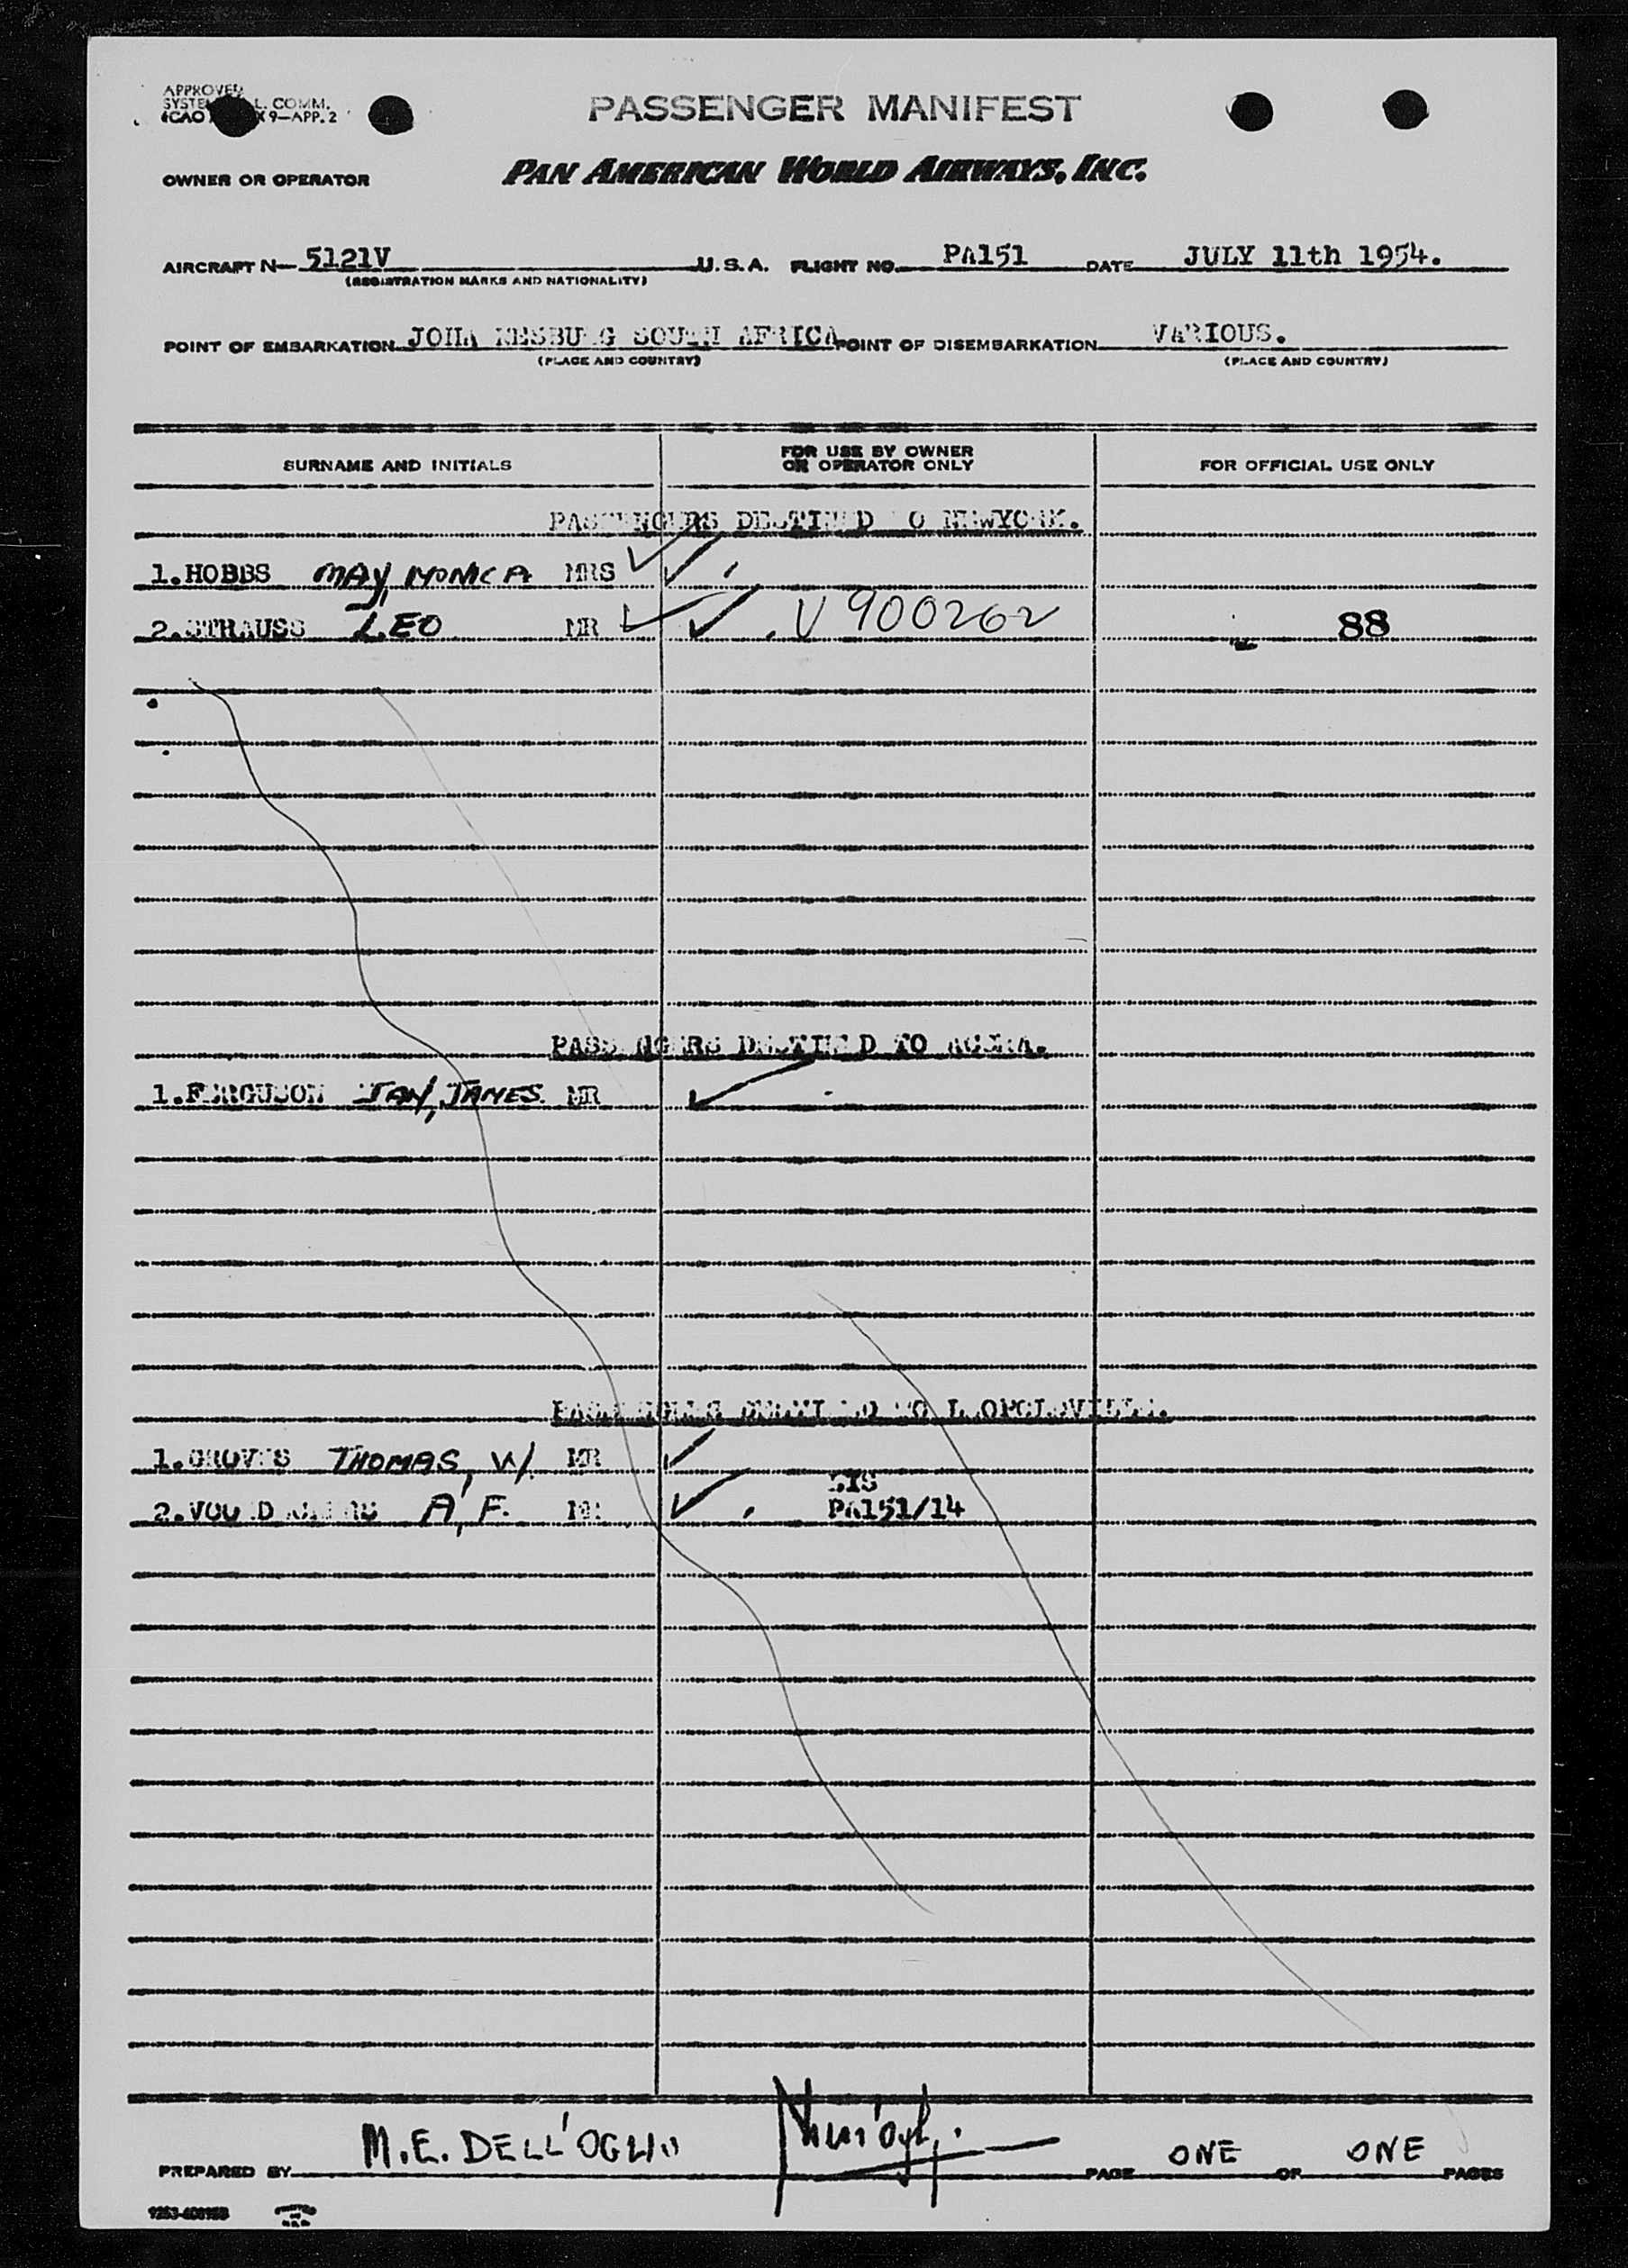 APPROVED
L. COMM.
9—APP. 2
PASSENGER MANIFEST
OWNER OR OPERATOR PAN AMERICAN WORLD AIRWAYS, INC.
AIRCRAFT N— 5121V U.S.A. FLIGHT NO. PA151 DATE JULY 11th 1954.
(REGISTRATION MARKS AND NATIONALITY)
POINT OF EMBARKATION JOHANNESBURG SOUTH AFRICA POINT OF DISEMBARKATION VARIOUS.
(PLACE AND COUNTRY) (PLACE AND COUNTRY)
SURNAME AND INITIALS FOR USE BY OWNER OR OPERATOR ONLY FOR OFFICIAL USE ONLY
PASSENGERS DESTINED TO NEWYORK.
1.HOBBS MAY, MONICA MRS
2.STRAUSS LEO MR V 900262 88
PASSENGERS DESTINED TO ACCRA.
1.FERGUSON JAY, JAMES. MR
PASSENGERS DESTINED TO LEOPOLDVILLE.
1.GROVES THOMAS, W. MR
2. A, F. MR PA151/14
PREPARED BY M.E. DELL'OGLIO PAGE ONE OF ONE PAGES